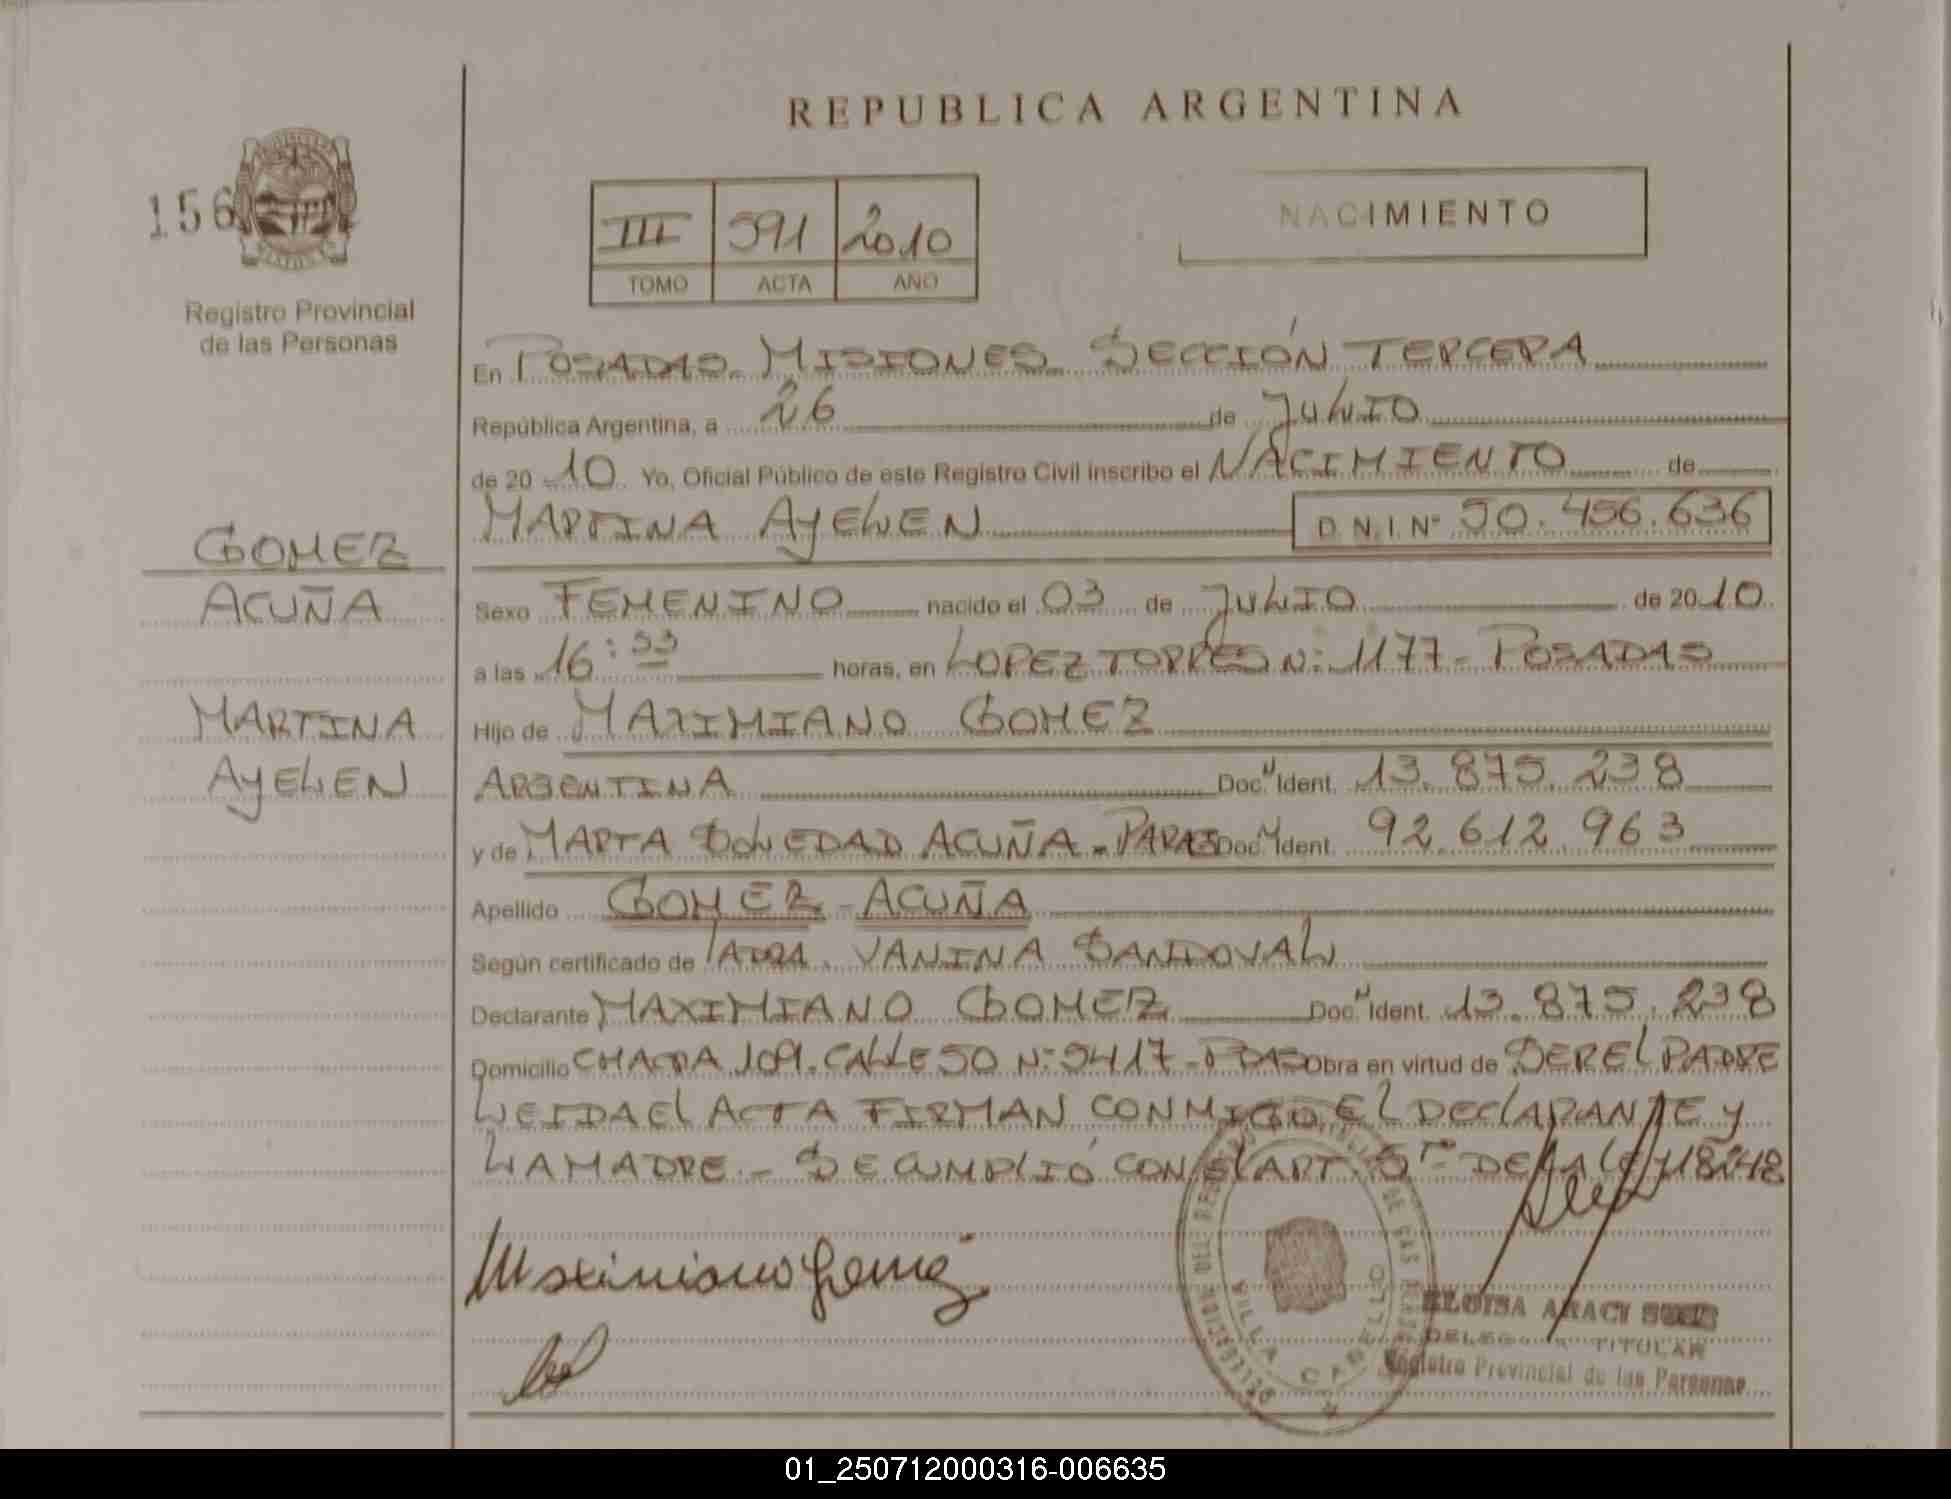 REPUBLICA ARGENTINA
156
Registro Provincial
de las Personas
III 591 2010
TOMO ACTA AÑO
NACIMIENTO
En POSADAS. MISIONES. SECCIÓN TERCERA
República Argentina, a 26 de JULIO
de 2010 Yo, Oficial Público de este Registro Civil inscribo el NACIMIENTO de
MARTINA AYELEN D.N.I. Nº 50.456.636
GOMEZ
ACUÑA
MARTINA
AYELEN
Sexo FEMENINO nacido el 03 de JULIO de 2010
a las 16:53 horas, en LOPEZ TORRES N: 1177 - POSADAS
Hijo de MAXIMIANO GOMEZ
ARGENTINA Doc. Ident. 13.875.238
y de MARTA SOLEDAD ACUÑA - Doc. Ident. 92.612.963
Apellido GOMEZ - ACUÑA
Según certificado de VANINA SANDOVAL
Declarante MAXIMIANO GOMEZ Doc. Ident. 13.875.238
Domicilio CHACRA 109. CALLE 50 N: 5417 - PDAS Obra en virtud de SER EL PADRE
LEIDA EL ACTA FIRMAN CONMIGO EL DECLARANTE y
LA MADRE. - SE CUMPLIÓ CON EL ART. 5 DE LA LEY 18248
Maximiano Gomez
VILLA CABELLO
ELOISA ARACI
TITULAR
Registro Provincial de las Personas
01_250712000316-006635